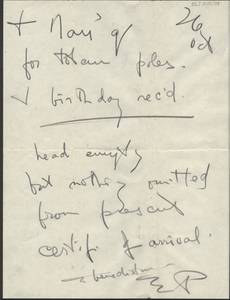 26
oct
+ Mari' q
for totem poles.
+ birthday rec'd.
head empty
but nothing omitted
from present
certif. of arrival.
benediction
EP